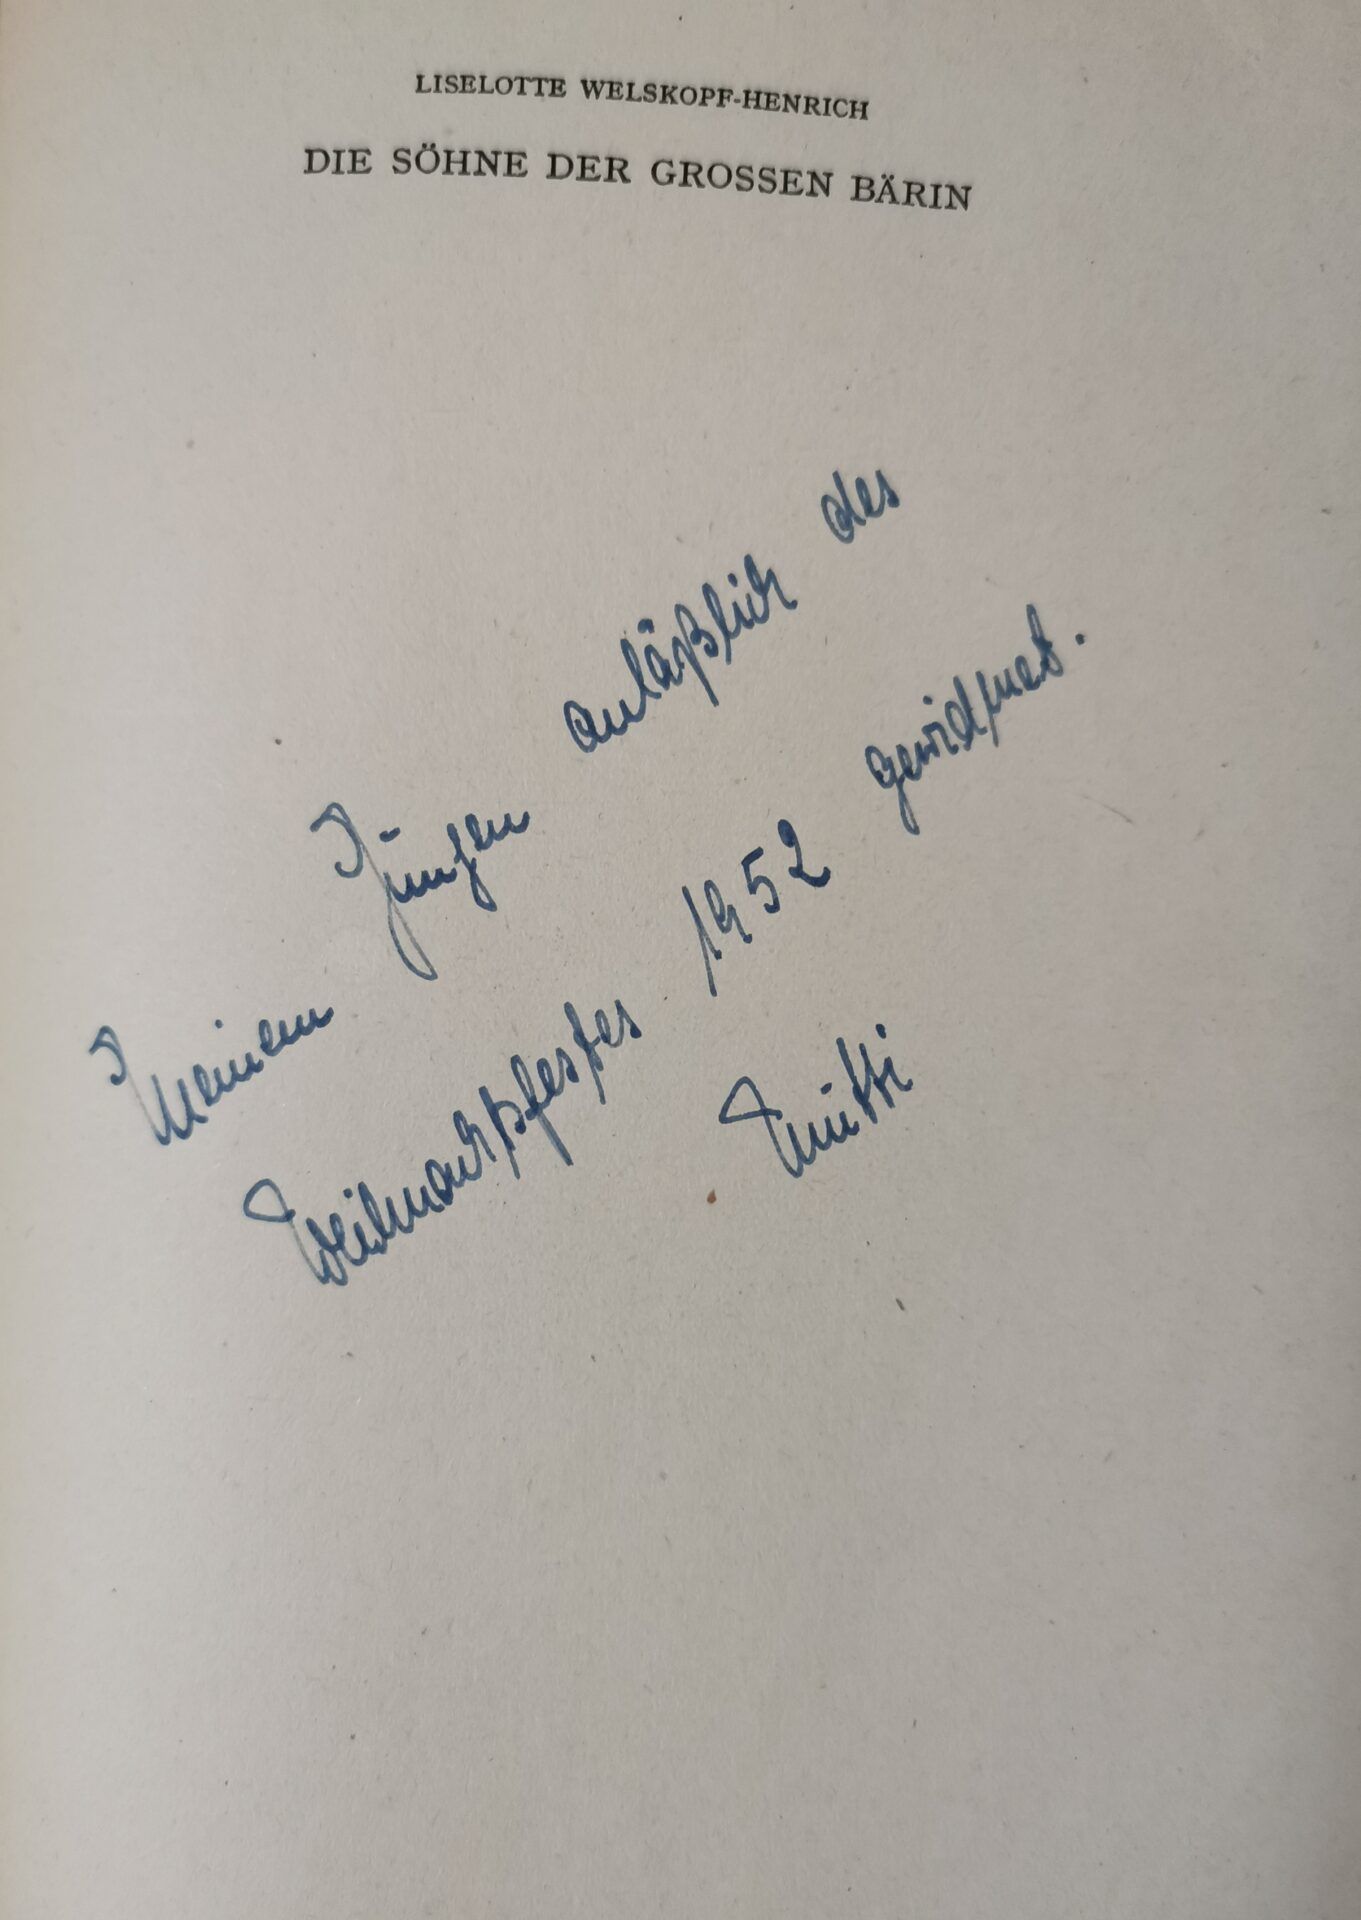 LISELOTTE WELSKOPF-HENRICH
DIE SÖHNE DER GROSSEN BÄRIN
Meinem Jungen anläßlich des
Weihnachtsfestes 1952 gewidmet.
Mutti